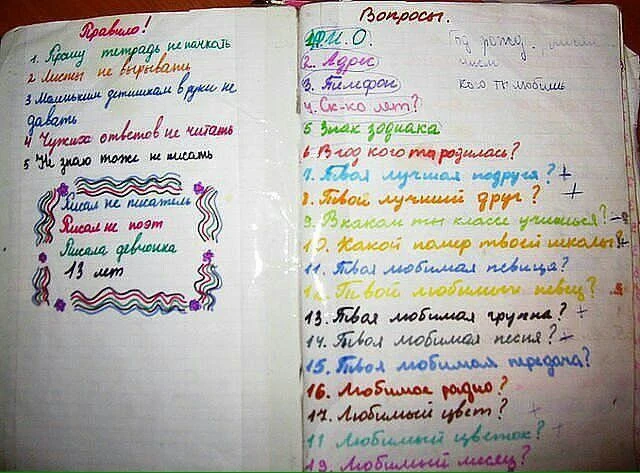 Правило!
1. Прошу тетрадь не пачкать
2 Листы не вырывать
3 Маленьким детишкам в руки не
давать
4 Чужих ответов не читать
5 Не знаю тоже не писать
Писал не писатель
Писал не поэт
Писала девчонка
13 лет
Вопросы.
1. Ф.И.О.
2. Адрес
3. Телефон
4. Ск-ко лет?
5 Знак зодиака
6 В год кого ты родилась?
7. Твоя лучшая подруга? +
8. Твой лучший друг? +
9. В каком ты классе учишься?
10. Какой номер твоей школы?
11. Твоя любимая певица?
12. Твой любимый певец?
13. Твоя любимая группа? +
14. Твоя любимая песня? +
15. Твоя любимая передача?
16. Любимое радио?
17. Любимый цвет? +
11 Любимый цветок? +
19. Любимый месяц?
Год рожд.
кого ты любишь